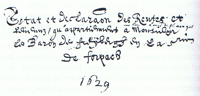 Estat et declaraõn des Rentes et
Revenus qu appartiennent a Monseigr
le Baron de
de forpach
1629